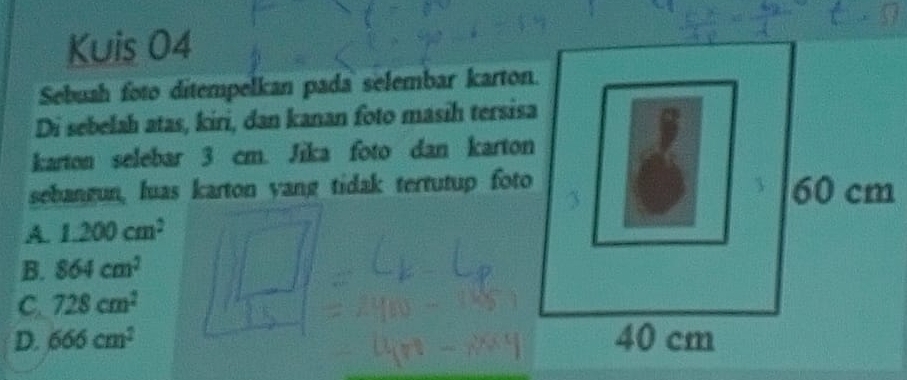 Kuis 04
Sebuah foto ditempelkan pada selembar karton.
Di sebelah atas, kiri, dan kanan foto masih tersisa
karton selebar 3 cm. Jika foto dan karton
sebangun, luas karton yang tidak tertutup foto
A. 1.200 cm²
B. 864 cm²
C. 728 cm²
D. 666 cm²
3
3
60 cm
40 cm
= Lk - Lp
= 2400 -